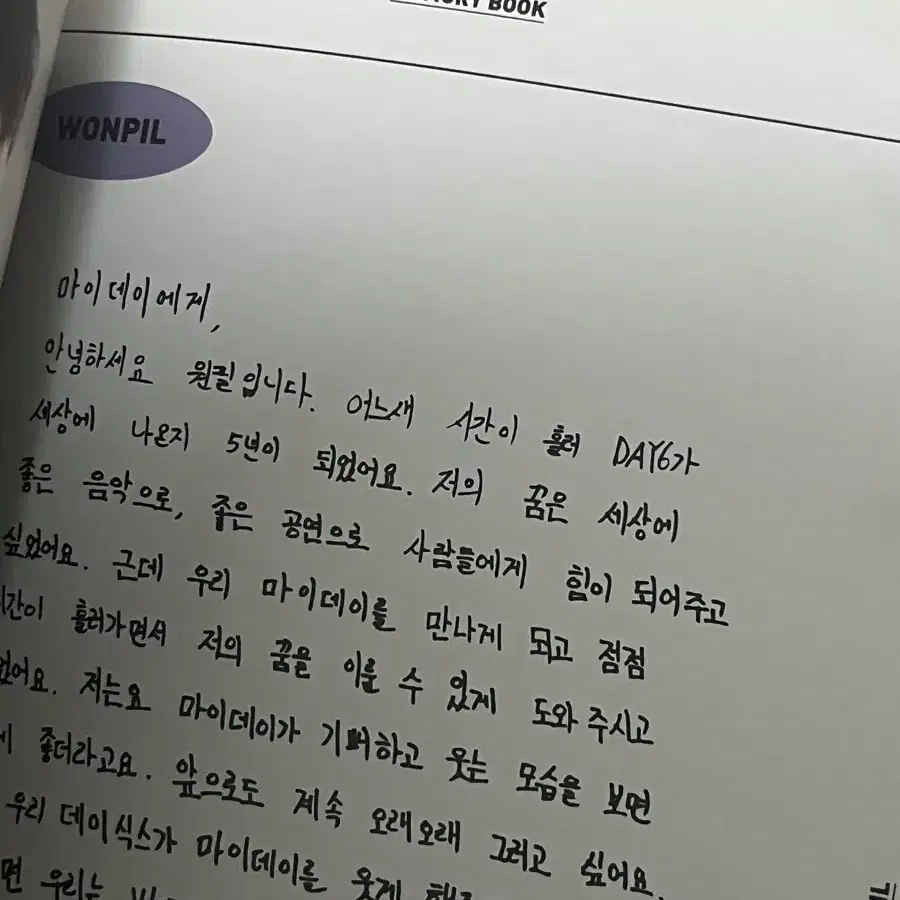 BOOK
WONPIL
마이데이에게,
안녕하세요 원필입니다. 어느새 시간이 흘러 DAY6가
세상에 나온지 5년이 되었어요. 저의 꿈은 세상에
좋은 음악으로, 좋은 공연으로 사람들에게 힘이 되어주고
싶었어요. 근데 우리 마이데이를 만나게 되고 점점
흘러가면서 저의 꿈을 이룰 수 있게 도와주시고
저는요 마이데이가 기뻐하고 웃는 모습을 보면
좋더라고요. 앞으로도 계속 오래오래 그러고 싶어요.
우리 데이식스가 마이데이를 웃게
우리는